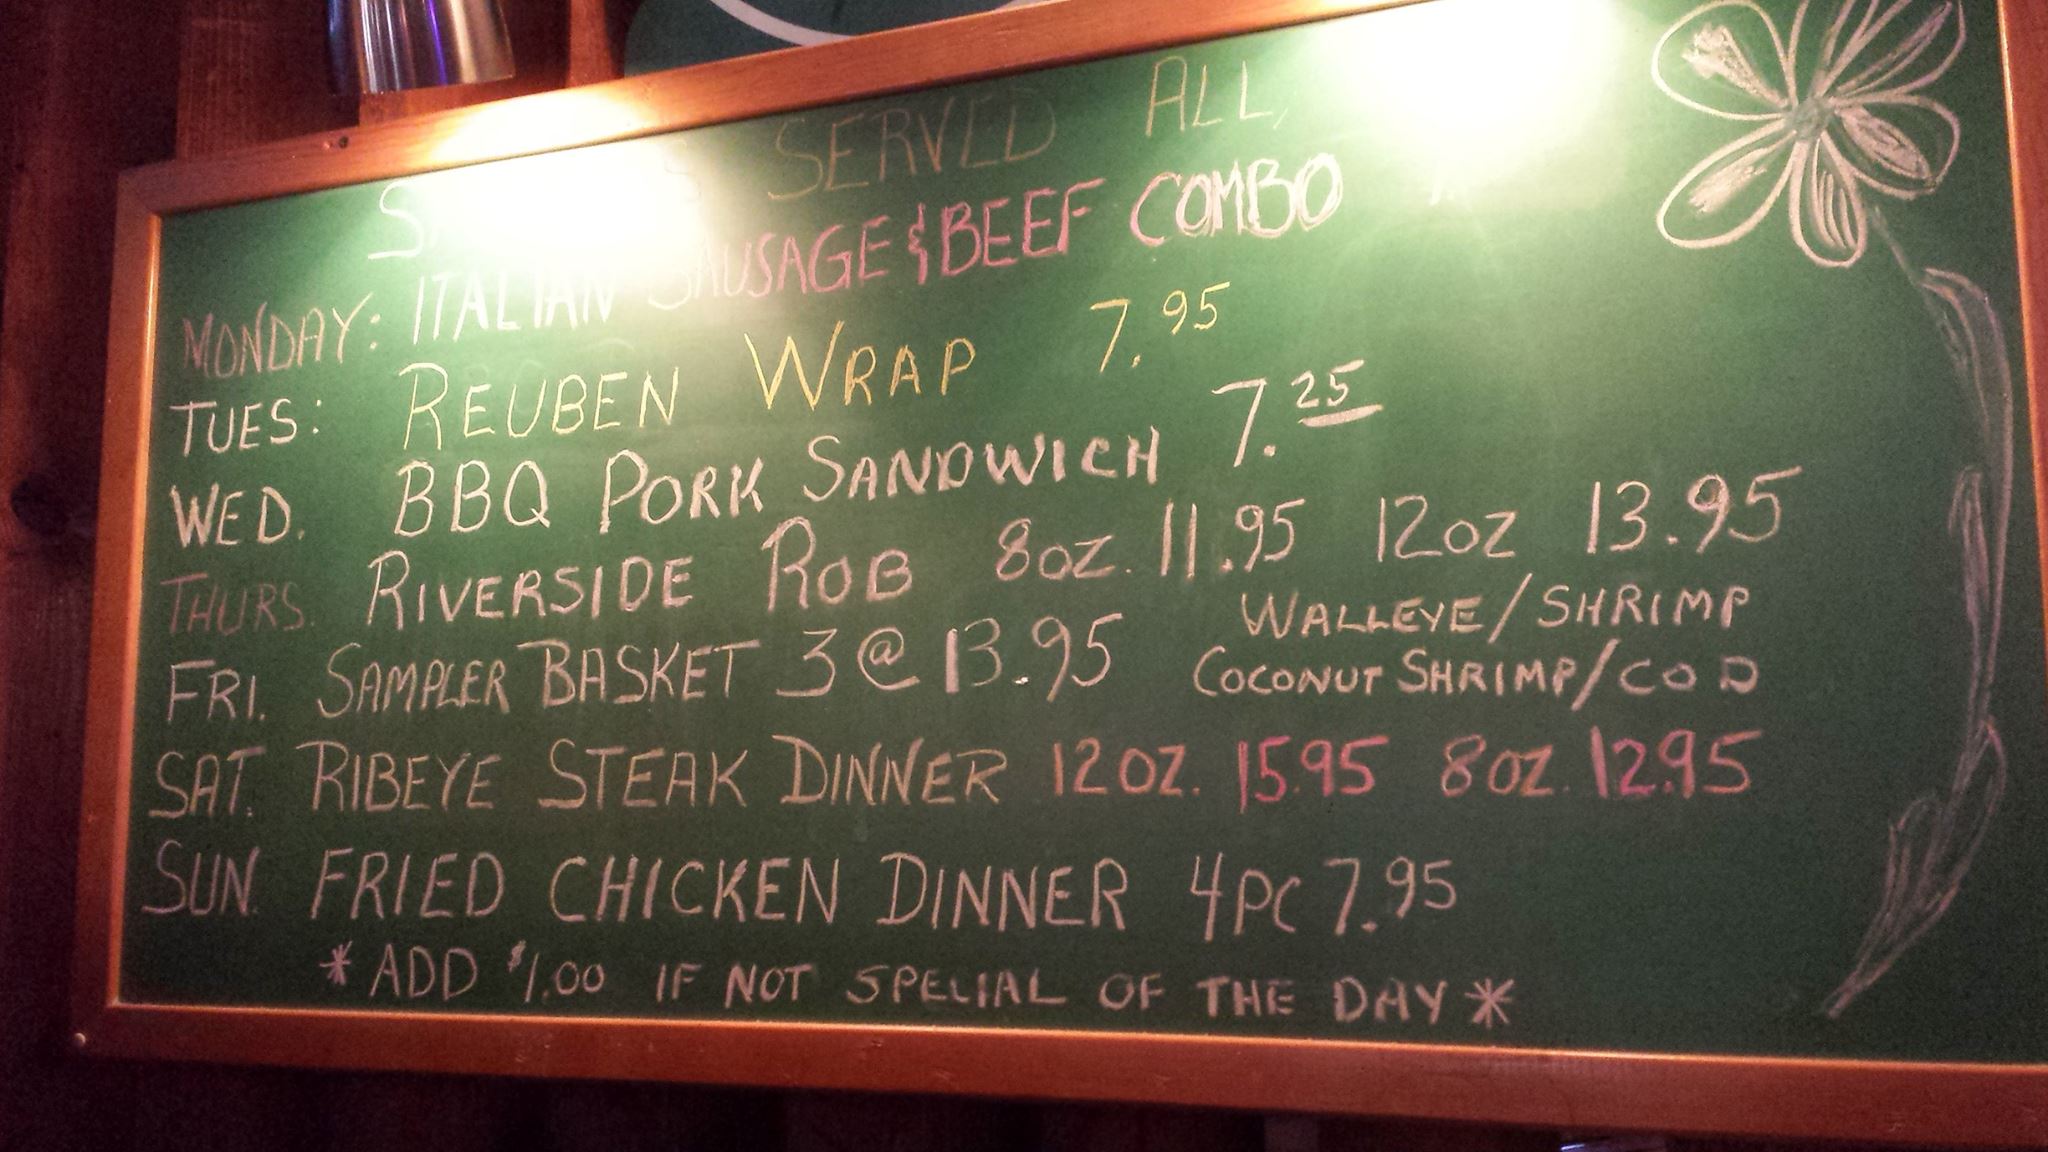 SERVED ALL
MONDAY: ITALIAN SAUSAGE & BEEF COMBO
TUES: REUBEN WRAP 7.95
WED. BBQ PORK SANDWICH 7.25
THURS. RIVERSIDE ROB 8OZ. 11.95 12OZ 13.95
FRI. SAMPLER BASKET 3@13.95 WALLEYE/SHRIMP
COCONUT SHRIMP/COD
SAT. RIBEYE STEAK DINNER 12OZ. 15.95 8OZ. 12.95
SUN. FRIED CHICKEN DINNER 4PC 7.95
*ADD $1.00 IF NOT SPECIAL OF THE DAY*